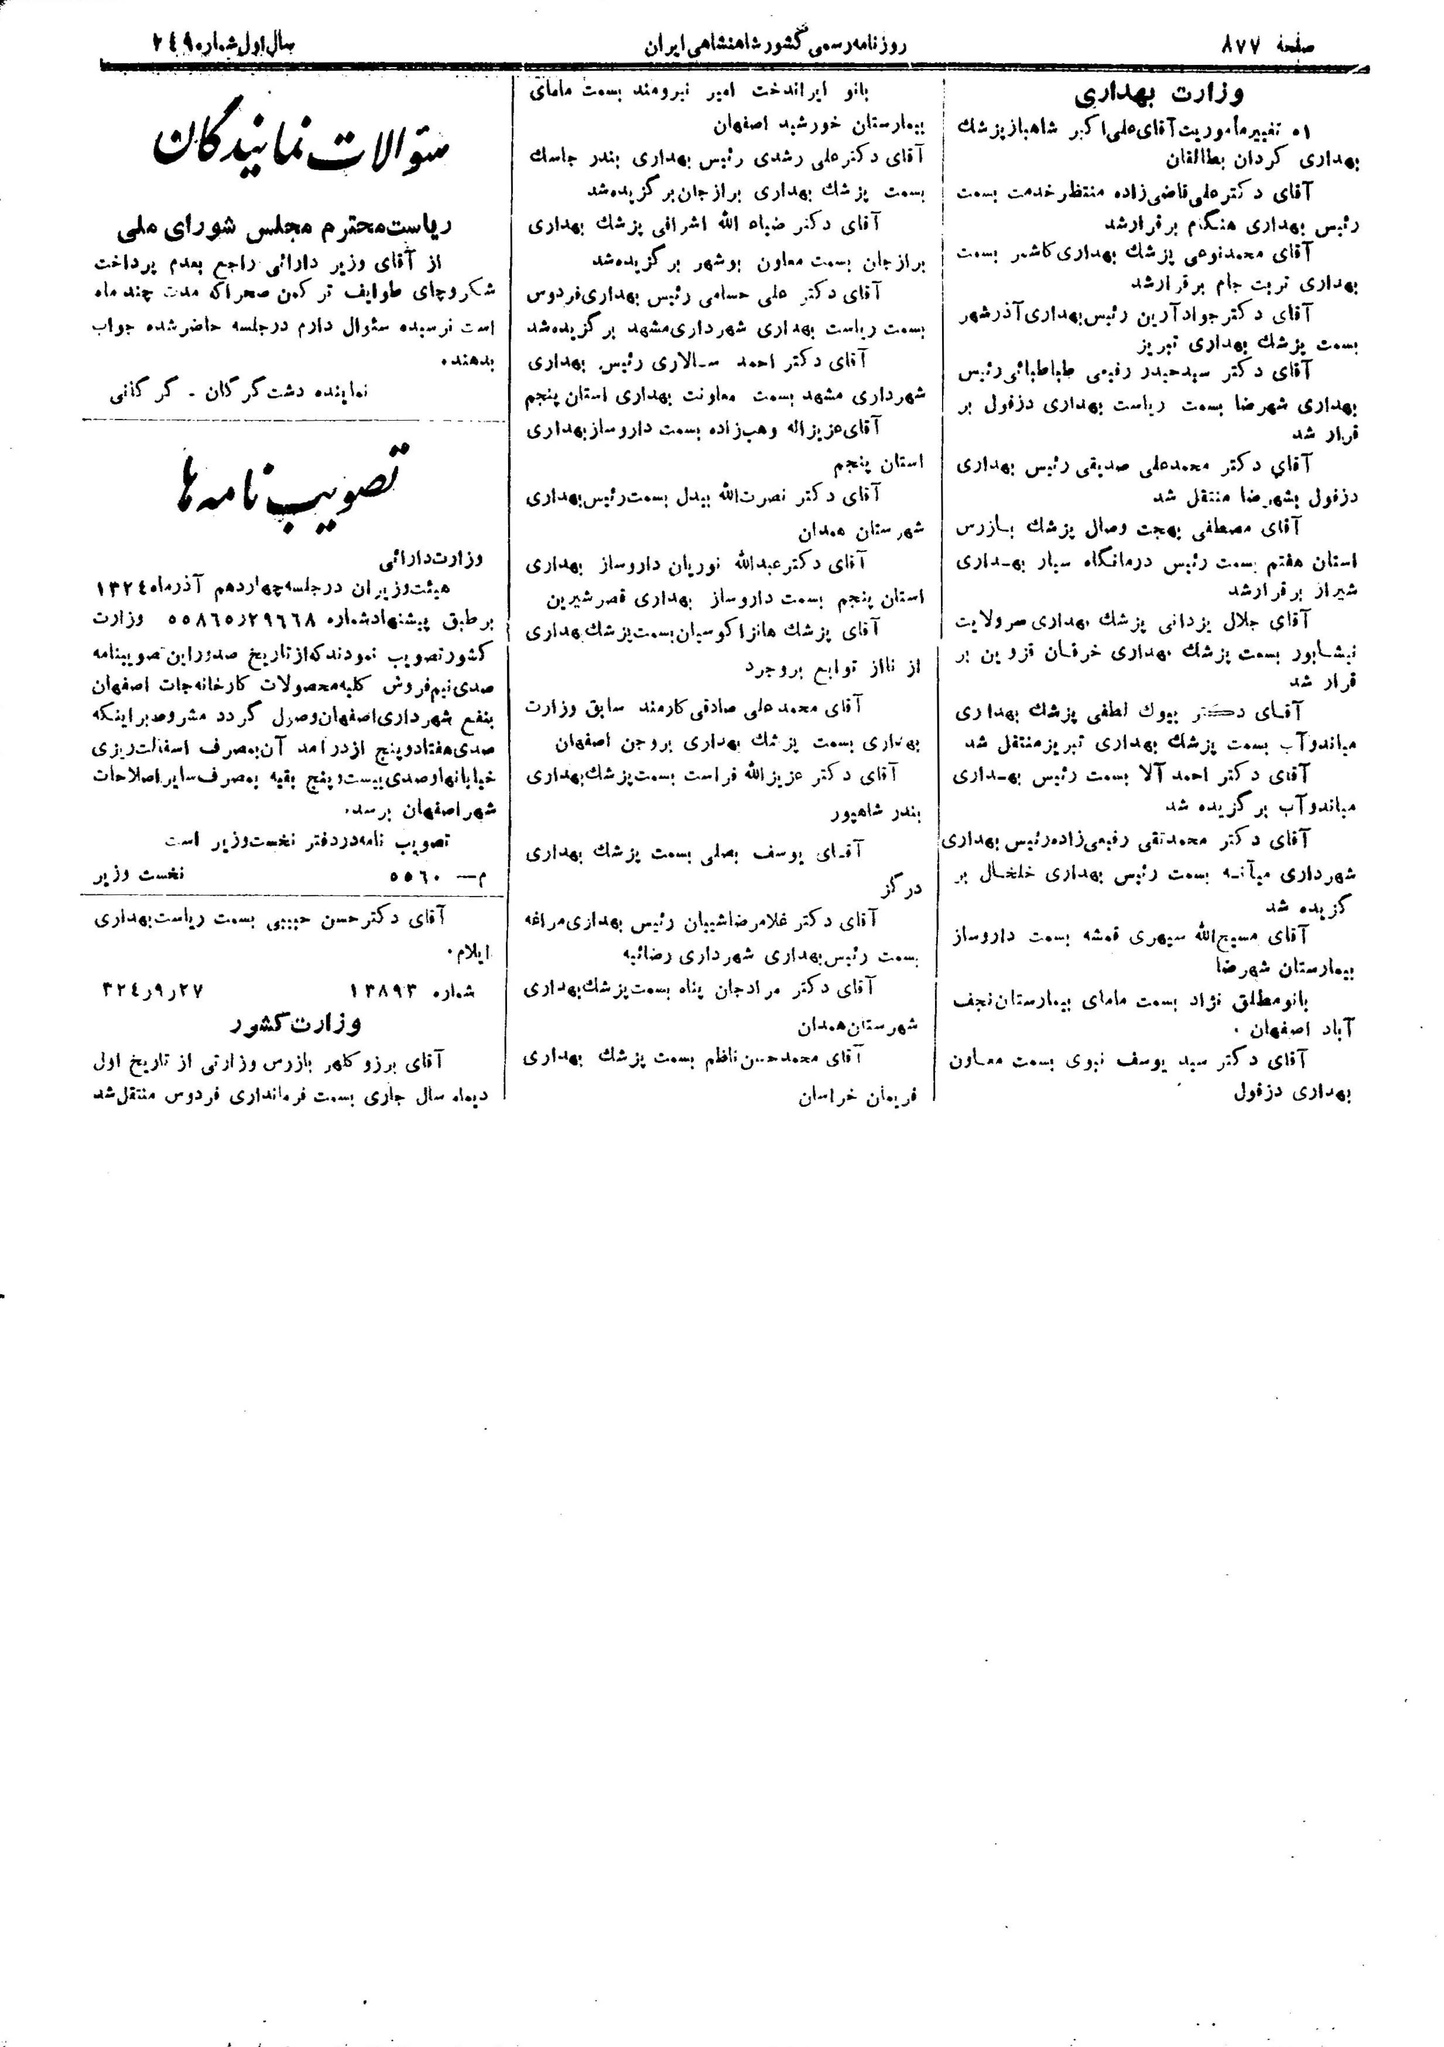 صفحه ۸۷۷
روزنامه رسمی کشور شاهنشاهی ایران
سال اول شماره ۲۴۹
وزارت بهداری
۵۱ تغییر مأموریت آقای علی اکبر شاهباز پزشك
بهداری کردان بطالقان
آقای دکتر علی قاضی زاده منتظر خدمت بسمت
رئیس بهداری هنگام برقرار شد
آقای محمد نوعی پزشك بهداری کاشمر بسمت
بهداری تربت جام برقرار شد
آقای دکتر جواد آرین رئیس بهداری آذرشهر
بسمت پزشك بهداری تبریز
آقای دکتر سید حیدر رفیعی طباطبائی رئیس
بهداری شهرضا بسمت ریاست بهداری دزفول بر
قرار شد
آقای دکتر محمد علی صدیقی رئیس بهداری
دزفول بشهرضا منتقل شد
آقای مصطفی بهجت وصال پزشك بازرس
استان هفتم بسمت رئیس درمانگاه سیار بهداری
شیراز برقرار شد
آقای جلال یزدانی پزشك بهداری سرولایت
نیشابور بسمت پزشك بهداری خرقان قزوین بر
قرار شد
آقای دکتر بیوك لطفی پزشك بهداری
میاندوآب بسمت پزشك بهداری تبریز منتقل شد
آقای دکتر احمد آلا بسمت رئیس بهداری
میاندوآب برگزیده شد
آقای دکتر محمد تقی رفیعی زاده رئیس بهداری
شهرداری میانه بسمت رئیس بهداری خلخال بر
گزیده شد
آقای مسیح الله سپهری قمشه بسمت داروساز
بیمارستان شهرضا
بانو مطلق نژاد بسمت مامای بیمارستان نجف
آباد اصفهان .
آقای دکتر سید یوسف نبوی بسمت معاون
بهداری دزفول
بانو ایراندخت امیر نیرومند بسمت مامای
بیمارستان خورشید اصفهان
آقای دکتر علی رشدی رئیس بهداری بندر جاسك
بسمت پزشك بهداری برازجان برگزیده شد
آقای دکتر ضیاء الله اشراقی پزشك بهداری
برازجان بسمت معاون بوشهر برگزیده شد
آقای دکتر علی حسامی رئیس بهداری فردوس
بسمت ریاست بهداری شهرداری مشهد برگزیده شد
آقای دکتر احمد سالاری رئیس بهداری
شهرداری مشهد بسمت معاونت بهداری استان پنجم
آقای عزیزاله وهب زاده بسمت داروساز بهداری
استان پنجم
آقای دکتر نصرت الله بیدل بسمت رئیس بهداری
شهرستان همدان
آقای دکتر عبدالله نوریان داروساز بهداری
استان پنجم بسمت داروساز بهداری قصرشیرین
آقای پزشك هانزاکوسیان بسمت پزشك بهداری
از نااز توابع بروجرد
آقای محمد علی صادقی کارمند سابق وزارت
بهداری بسمت پزشك بهداری بروجن اصفهان
آقای دکتر عزیزالله فراست بسمت پزشك بهداری
بندر شاهپور
آقای یوسف بصلی بسمت پزشك بهداری
درگز
آقای دکتر غلامرضا شیبان رئیس بهداری مراغه
بسمت رئیس بهداری شهرداری رضائیه
آقای دکتر مرادجان پناه بسمت پزشك بهداری
شهرستان همدان
آقای محمد حسن ناظم بسمت پزشك بهداری
فریمان خراسان
سؤالات نمایندگان
ریاست محترم مجلس شورای ملی
از آقای وزیر دارائی راجع بعدم پرداخت
شکر و چای طوایف ترکمن صحرا که مدت چند ماه
است نرسیده سئوال دارم در جلسه حاضر شده جواب
بدهند.
نماینده دشت گرگان - گرگانی
تصویب نامه ها
وزارت دارائی
هیئت وزیران در جلسه چهاردهم آذرماه ۱۳۲۴
برطبق پیشنهاد شماره ۲۹۶۶۸ر۵۵۸۶۵ وزارت
کشور تصویب نمودند که از تاریخ صدور این تصویبنامه
صدی نیم فروش کلیه محصولات کارخانه جات اصفهان
بنفع شهرداری اصفهان وصول گردد مشروط بر اینکه
صدی هفتاد و پنج از درآمد آن بمصرف اسفالت ریزی
خیابانها و صدی بیست و پنج بقیه بمصرف سایر اصلاحات
شهر اصفهان برسد.
تصویب نامه در دفتر نخست وزیر است
م — ۵۵۶۰ نخست وزیر
آقای دکتر حسن حبیبی بسمت ریاست بهداری
ایلام.
شماره ۱۳۸۹۳ ۲۷ر۹ر۳۲۴
وزارت کشور
آقای برزو کلهر بازرس وزارتی از تاریخ اول
دیماه سال جاری بسمت فرمانداری فردوس منتقل شد